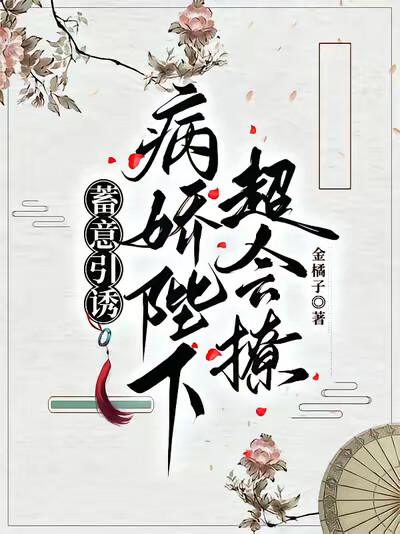 蓄意引诱
病娇陛下
超会撩
金橘子◎著